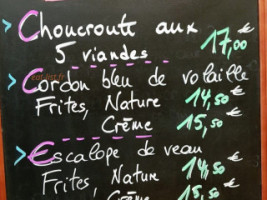 > Choucroute aux
5 viandes 17,00 €
> Cordon bleu de volaille
Frites, Nature 14,50 €
Crème 15,50 €
> Escalope de veau
Frites, Nature 14,50 €
Crème 15,50